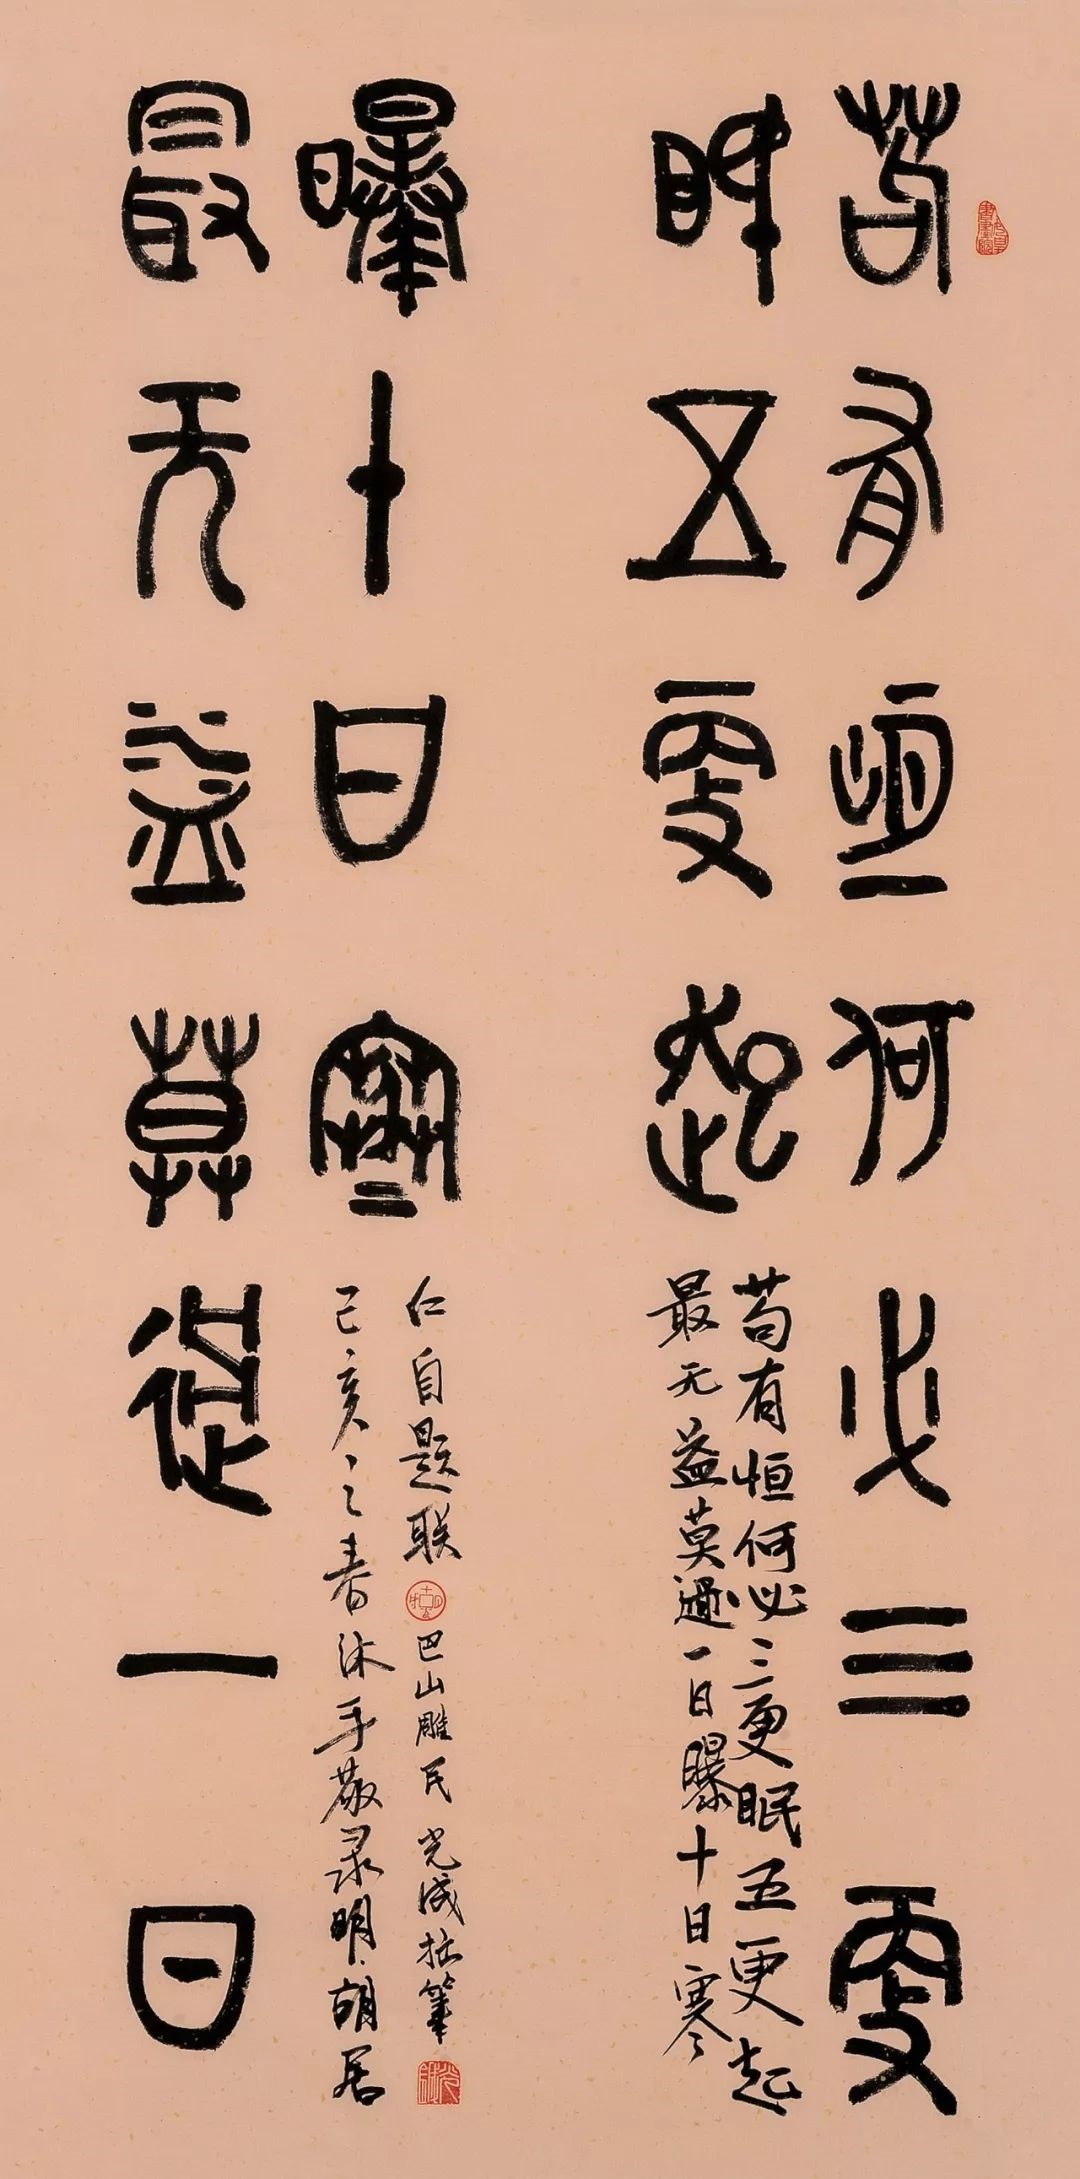 苟有恒何必三更
眠五更起
苟有恒何必三更眠五更起
最无益莫過一日曝十日寒
最无益莫過一日
曝十日寒
己亥之春沐手敬录明胡居
仁自题联 巴山雕民光成拙筆